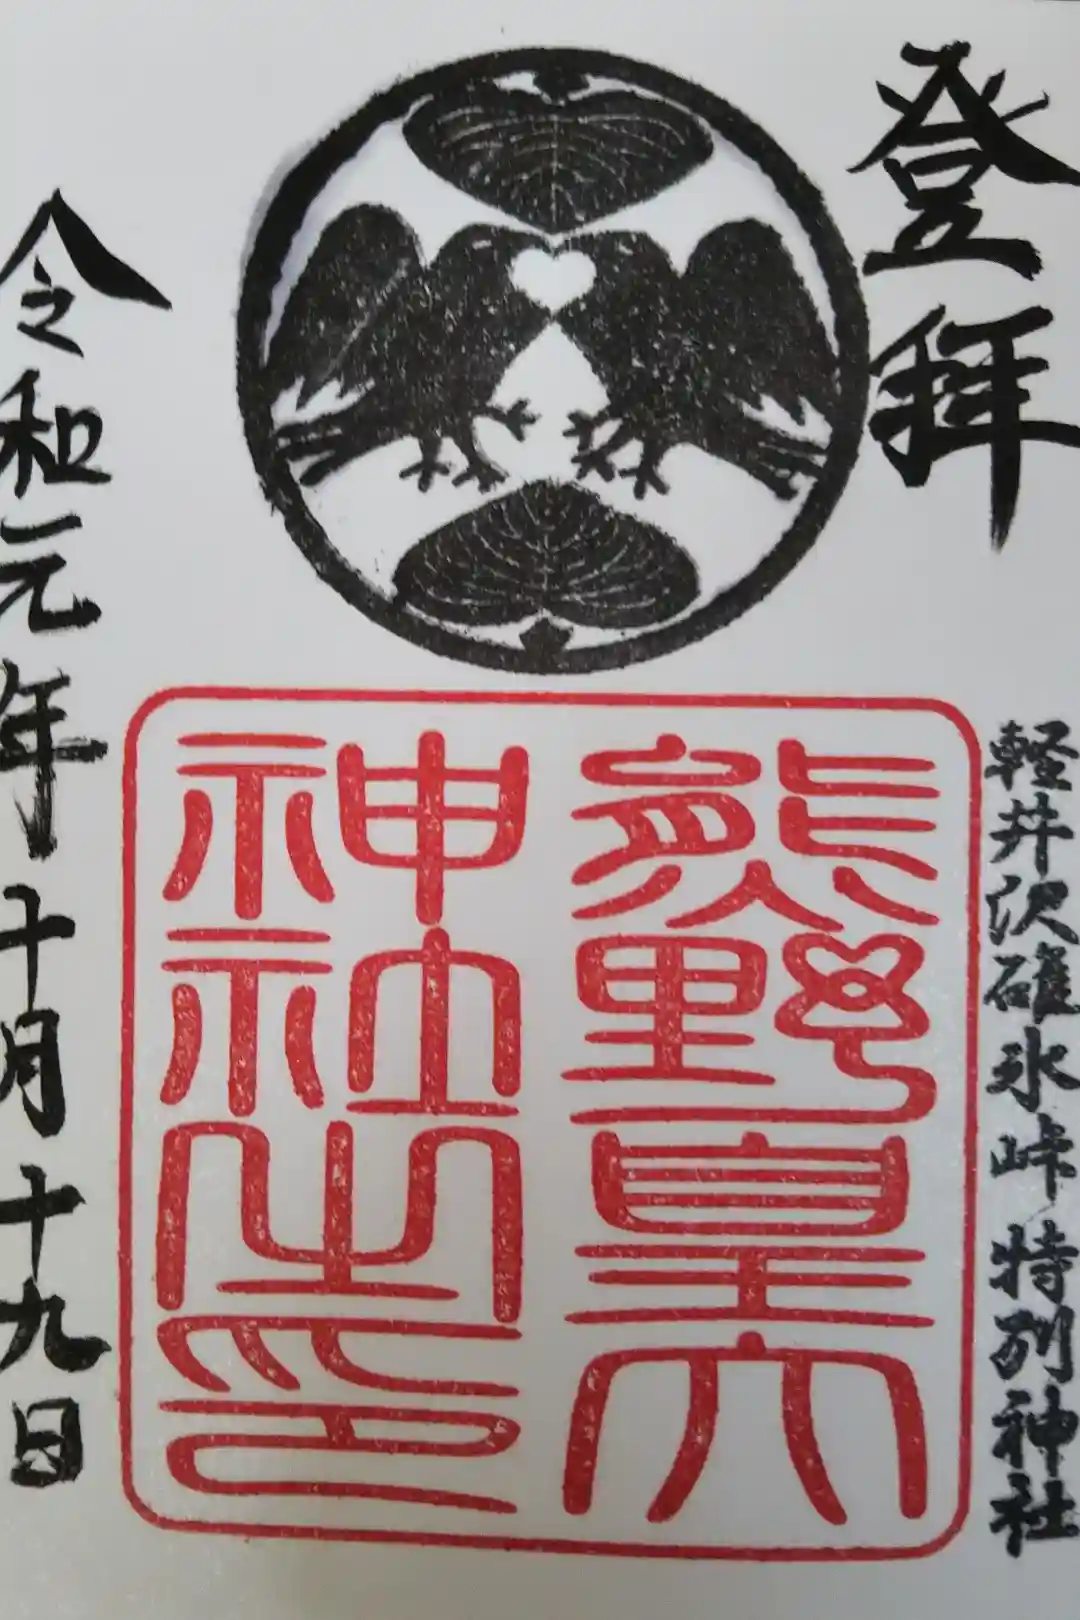 登拜
軽井沢碓氷峠特別神社
熊野皇大
神社之印
令和元年十月十九日